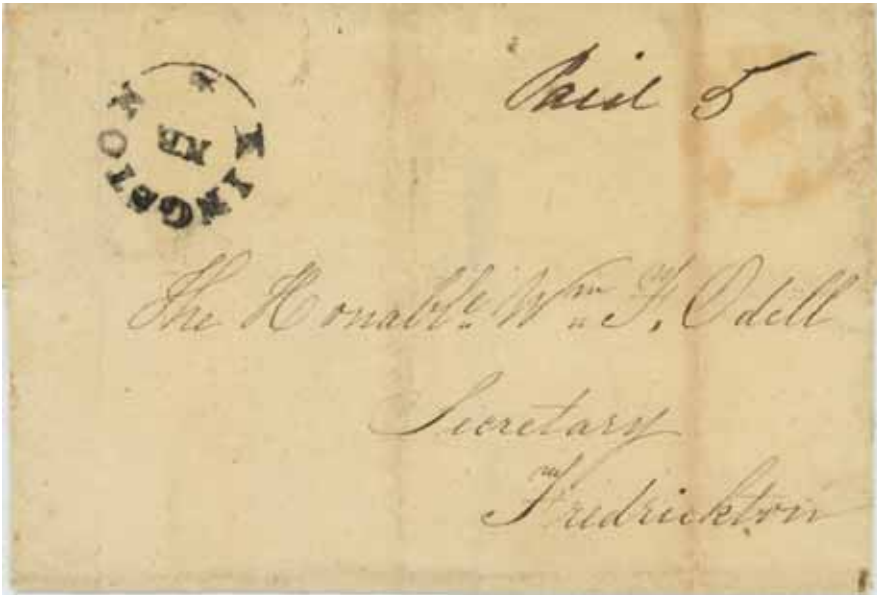 Paid 5
KINGSTON
NB
The Honable. Wm F. Odell
Secretary
Fredrickton